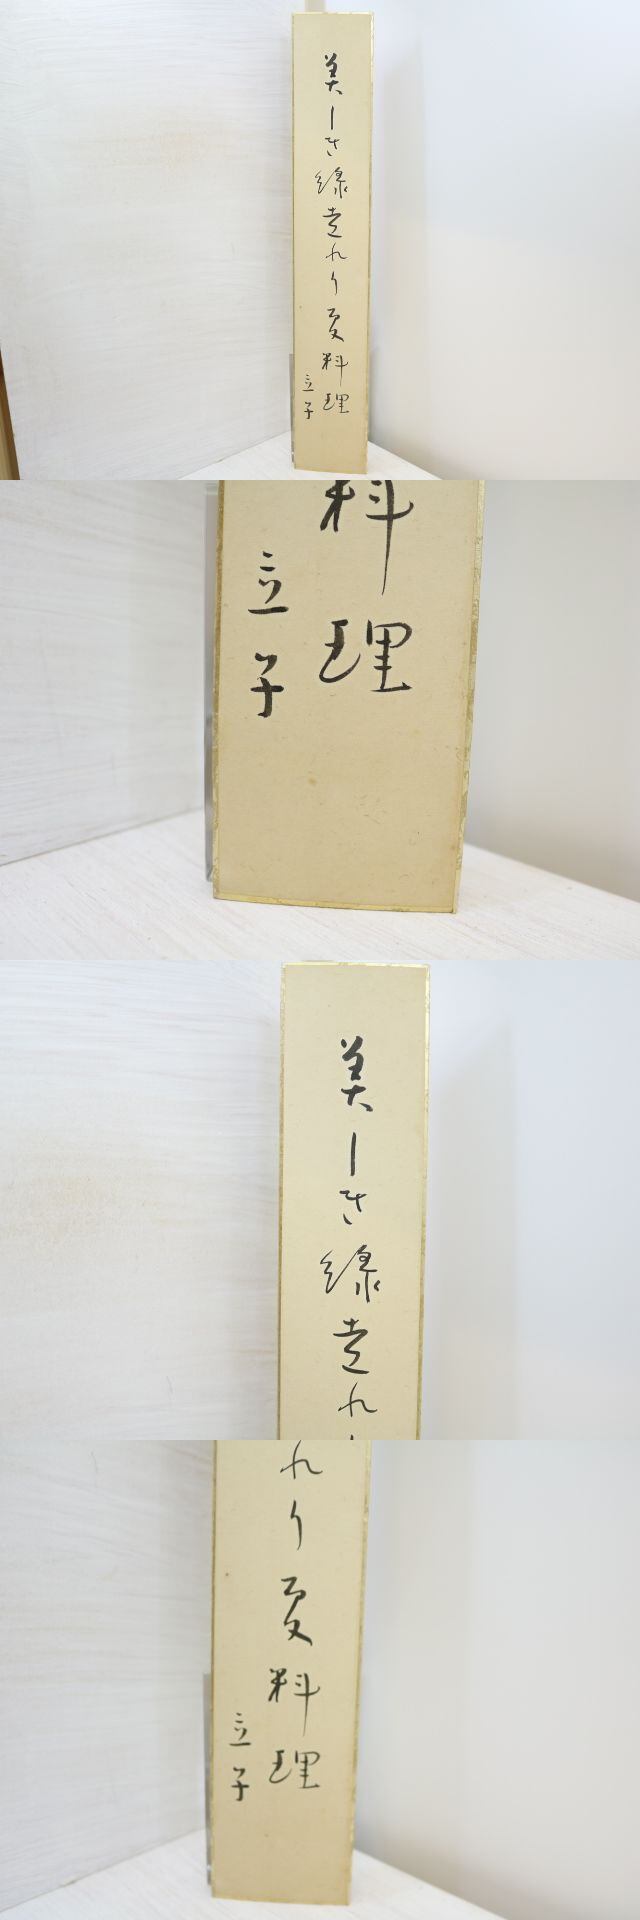 美しき緑走れり夏料理
立子
料
理
立
子
美しき緑走れ
れり夏料理
立子